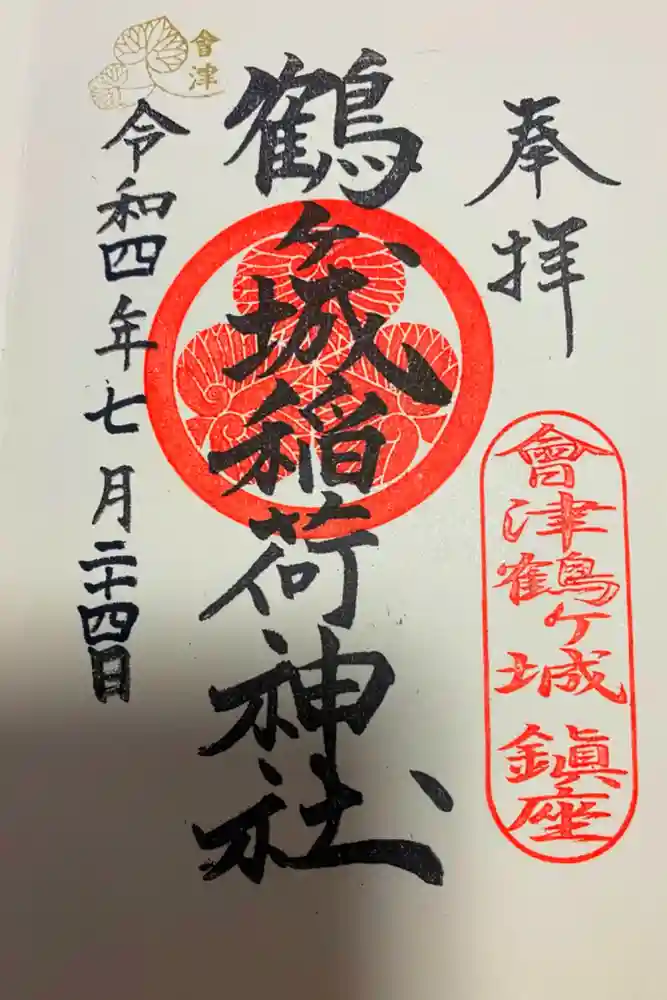 奉拝
會津鶴ヶ城 鎮座
鶴ヶ城稲荷神社
會津
令和四年七月二十四日